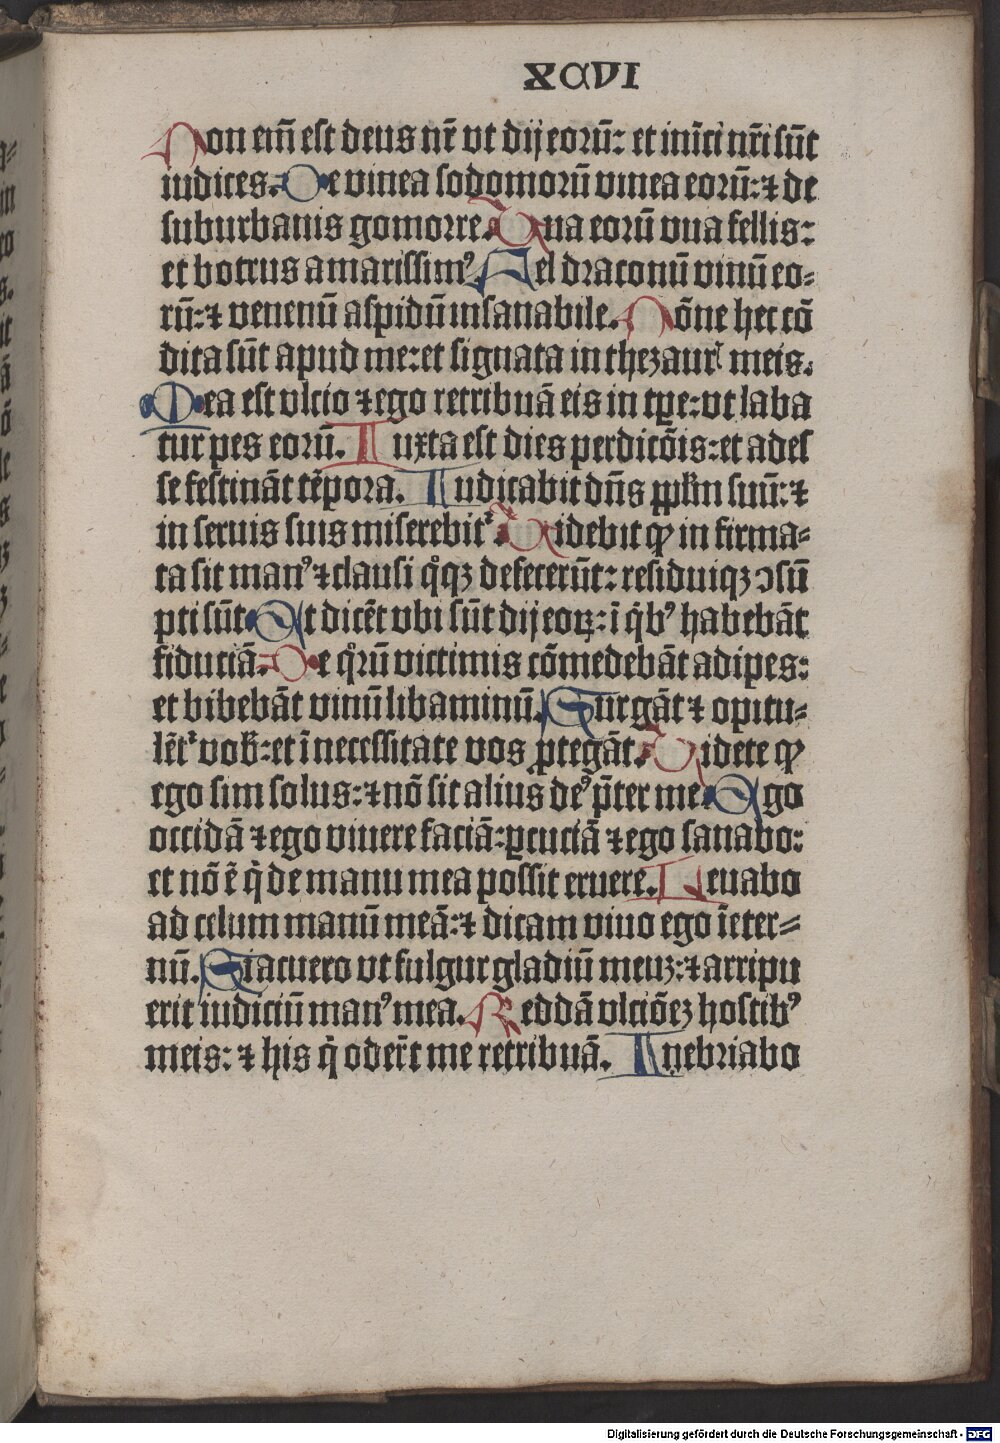 XCVI
Non em̄ est deus nr̄ vt dij eorū: et inīci nr̄i sūt
iudices. De vinea sodomorū vinea eorū: ⁊ de
suburbanis gomorre. Uua eorū vua fellis:
et botrus amarissimꝰ. Fel draconū vinū eo⸗
rū: ⁊ venenū aspidū insanabile. Nōne hec cō
dita sūt apud me: et signata in thezaur̄ meis.
Mea est vlcio ⁊ ego retribuā eis in tꝑe: vt laba
tur pes eorū. Iuxta est dies perdicōis: et adeſ
se festināt tēpora. Iudicabit dn̄s ppl̄m suū: ⁊
in seruis suis miserebit᷑. Uidebit ꝙ in firma⸗
ta sit manꝰ ⁊ clausi qͦqꝫ defecerūt: residuiqꝫ ↄsū
pti sūt. Et dicēt vbi sūt dij eoꝝ: ī qͥbꝰ habebāt
fiduciā. De qͦrū victimis cōmedebāt adipes:
et bibebāt vinū libaminū. Surgāt ⁊ opitu⸗
lēt᷑ vob̄: et ī necessitate vos ꝓtegāt. Uidete ꝙ
ego sim solus: ⁊ nō sit alius deꝰ p̄ter me. Ego
occidā ⁊ ego viuere faciā: ꝑcuciā ⁊ ego sanabo:
et nō ē qͥ de manu mea possit eruere. Leuabo
ad celum manū meā: ⁊ dicam viuo ego ī eter⸗
nū. Si acuero vt fulgur gladiū meuꝫ: ⁊ arripu
erit iudiciū manꝰ mea. Reddā vlciōeꝫ hostibꝰ
meis: ⁊ his qͥ oder̄t me retribuā. Inebriabo
Digitalisierung gefördert durch die Deutsche Forschungsgemeinschaft - DFG